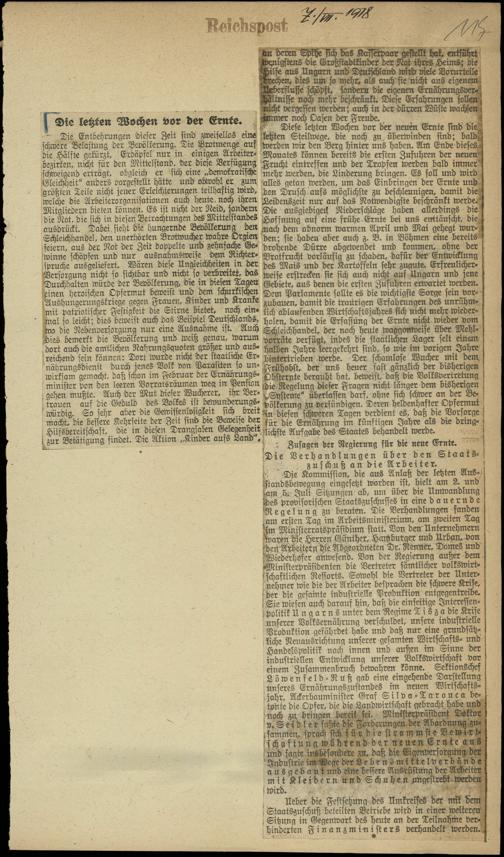 Reichspost
7./VII. 1918
Die letzten Wochen vor der Ernte.
Die Entbehrungen dieser Zeit sind zweifellos eine
schwere Belastung der Bevölkerung. Die Brotmenge auf
die Hälfte gekürzt, Erdäpfel nur in einigen Arbeiter-
bezirken, nicht für den Mittelstand, der diese Verfügung
schweigend erträgt, obgleich er sich eine „demokratische
Gleichheit" anders vorgestellt hätte und obwohl er zum
größten Teile nicht jener Erleichterungen teilhaftig wird,
welche die Arbeiterorganisationen auch heute noch ihren
Mitgliedern bieten können. Es ist nicht der Neid, sondern
die Not, die sich in dieser Betrachtungen des Mittelstandes
ausdrückt. Dabei sieht die hungernde Bevölkerung den
Schleichhandel, den unerhörten Brotwucher wahre Orgien
feiern, aus der Not der doppelte und zehnfache Ge-
winne schöpfen und nur ausnahmsweise dem Richter-
spruche ausgeliefert. Wären diese Ungleichheiten in der
Versorgung nicht so sichtbar und nicht so verbreitet, das
Durchhalten würde der Bevölkerung, die in diesen Tagen
einen heroischen Opfermut beweist und dem schurkischen
Aushungerungskriege gegen Frauen, Kinder und Kranke
mit patriotischer Zeligkeit die Stirne bietet, noch ein-
mal so leicht; dies beweist auch das Beispiel Deutschlands,
wo die Nebenversorgung nur eine Ausnahme ist. Auch
dies bemerkt die Bevölkerung und weiß genau, warum
dort auch die amtlichen Nahrungsquoten größer und aus-
reichend sein können: Dort wurde nicht der staatliche Er-
nährungsdienst durch jenes Volk von Parasiten so un-
wirksam gemacht, daß schon im Februar der Ernährungs-
minister von den leeren Vorratsräumen weg in Pension
gehen mußte. Auch der Mut dieser Wucherer, ihr Ver-
trauen auf die Geduld des Volkes ist bewunderungs-
würdig. So sehr aber die Gewissenlosigkeit sich breit
macht, die bessere Mehrheit der Zeit sind die Beweise der
Hilfsbereitschaft, die in diesen Drangsalen Gelegenheit
zur Betätigung findet. Die Aktion „Kinder aufs Land",
an deren Spitze sich das Kaiserpaar gestellt hat, entführt
wenigstens die Großstadtkinder der Not ihres Heims; die
Hilfe aus Ungarn und Deutschland wird viele Vorurteile
brechen, dies um so mehr, als auch sie nicht aus eigenem
Ueberflusse schöpft, sondern die eigenen Ernährungsver-
hältnisse noch mehr beschränkt. Diese Erfahrungen sollen
nicht vergessen werden; auch in der dürren Wüste wachsen
immer noch Oasen der Freude.
Diese letzten Wochen vor der neuen Ernte sind die
letzten Steilwege, die noch zu überwinden sind; bald
werden wir den Berg hinter uns haben. Am Ende dieses
Monates können bereits die ersten Zufuhren der neuen
Frucht eintreffen und der Tropfen werden bald immer
mehr werden, die Linderung bringen. Es soll und wird
alles getan werden, um das Einbringen der Ernte und
den Drusch aufs möglichste zu beschleunigen, damit die
Leidenszeit nur auf das Notwendigste beschränkt werde.
Die ausgiebigen Niederschläge haben allerdings die
Hoffnung auf eine frühe Ernte bei uns enttäuscht, die
nach dem abnorm warmen April und Mai gehegt wur-
den; sie haben aber auch z. B. in Böhmen eine bereits
drohende Dürre abgewendet und kommen, ohne der
Brotfrucht vorläufig zu schaden, dafür der Entwicklung
des Mais und der Kartoffeln sehr zugute. Erfreulicher-
weise erstrecken sie sich auch nicht auf Ungarn und jene
Gebiete, aus denen die ersten Zufuhren erwartet werden.
Dem Parlamente sollte es die wichtigste Sorge sein vor-
zubauen, damit die traurigen Erfahrungen des unrühm-
lich ablaufenden Wirtschaftsjahres sich nicht mehr wieder-
holen, damit die Erfassung der Ernte nicht wieder vom
Schleichhandel, der noch heute waggonweise über Mehl-
vorräte verfügt, indes die staatlichen Lager seit einem
halben Jahre leergekehrt sind, so wie im vorigen Jahre
hintertrieben werde. Der schamlose Wucher mit dem
Frühobst, der uns heuer fast gänzlich der billigeren
Obsternte beraubt hat, beweist, daß die Volksvertretung
die Regelung dieser Fragen nicht länger dem bisherigen
„Systeme" überlassen darf, ohne sich schwer an der Be-
völkerung zu versündigen. Deren heldenhafter Opfermut
in diesen schweren Tagen verdient es, daß die Vorsorge
für die Ernährung im künftigen Jahre als die dring-
lichste Aufgabe des Staates behandelt werde.
Zusagen der Regierung für die neue Ernte.
Die Verhandlungen über den Staats-
zuschuß an die Arbeiter.
Die Kommission, die aus Anlaß der letzten Aus-
standsbewegung eingesetzt worden ist, hielt am 2. und
am 5. Juli Sitzungen ab, um über die Umwandlung
des provisorischen Staatszuschusses in eine dauernde
Regelung zu beraten. Die Verhandlungen fanden
am ersten Tag im Arbeitsministerium, am zweiten Tag
im Ministerratspräsidium statt. Von den Unternehmern
waren die Herren Günther, Hamburger und Urban, von
den Arbeitern die Abgeordneten Dr. Renner, Domes und
Wiederhofer anwesend. Von der Regierung außer dem
Ministerpräsidenten die Vertreter sämtlicher volkswirt-
schaftlichen Ressorts. Sowohl die Vertreter der Unter-
nehmer wie die der Arbeiter besprachen die schwere Krise,
der die gesamte industrielle Produktion entgegentreibe.
Sie wiesen auch darauf hin, daß die einseitige Interessen-
politik Ungarns unter dem Regime Tisza die Krise
unserer Volksernährung verschuldet, unsere industrielle
Produktion gefährdet habe und daß nur eine grundsätz-
liche Neuausrichtung unserer gesamten Wirtschafts- und
Handelspolitik nach innen und außen im Sinne der
industriellen Entwicklung unserer Volkswirtschaft vor
einem Zusammenbruch bewahren könne. Sektionschef
Löwenfeld-Ruß gab eine eingehende Darstellung
unseres Ernährungszustandes im neuen Wirtschafts-
jahr. Ackerbauminister Graf Silva-Tarouca be-
tonte die Opfer, die die Landwirtschaft gebracht habe und
noch zu bringen bereit sei. Ministerpräsident Doktor
v. Seidler faßte die Forderungen der Abordnung zu-
sammen, sprach sich für die strammste Bewirt-
schaftung während der neuen Ernte aus
und sagte insbesondere zu, daß die Eigenversorgung der
Industrie im Wege der Lebensmittelverbände
ausgebaut und eine bessere Ausrüstung der Arbeiter
mit Kleidern und Schuhen angestrebt werden
wird.
Ueber die Festsetzung des Umkreises der mit dem
Staatszuschuß beteilten Betriebe wird in einer weiteren
Sitzung in Gegenwart des heute an der Teilnahme ver-
hinderten Finanzministers verhandelt werden.